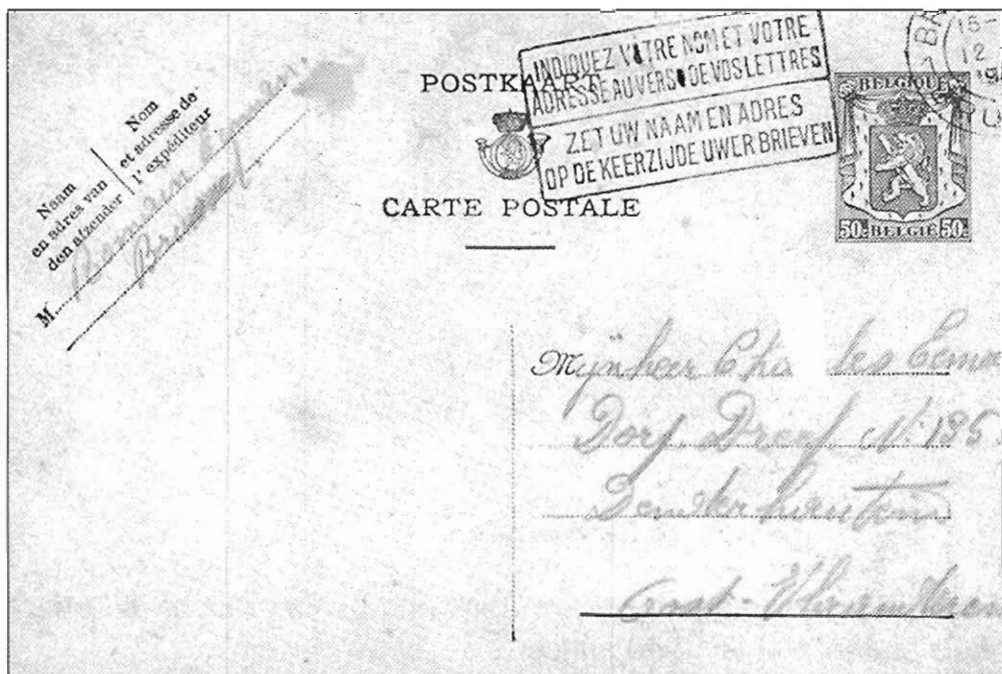 Naam
en adres van
den afzender
Nom
et adresse de
l'expéditeur
M
POSTKAART
CARTE POSTALE
INDIQUEZ VOTRE NOM ET VOTRE
ADRESSE AU VERSO DE VOS LETTRES
ZET UW NAAM EN ADRES
OP DE KEERZIJDE UWER BRIEVEN
15-
12
BELGIQUE
50c BELGIË 50c
Mijnheer
Dorp Dreef N° 195
Denderhoutem
Oost-Vlaanderen